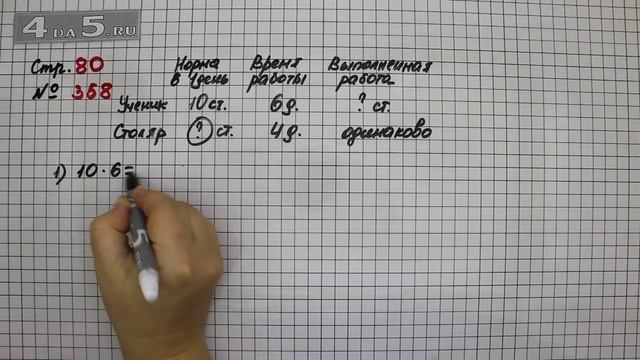 4 DA 5.RU
Стр. 80
№ 358
Норма в 1 день
Время работы
Выполненная работа
Ученик 10 ст. 6 д. ? ст.
Столяр ? ст. 4 д. одинаково
1) 10 · 6 =
5